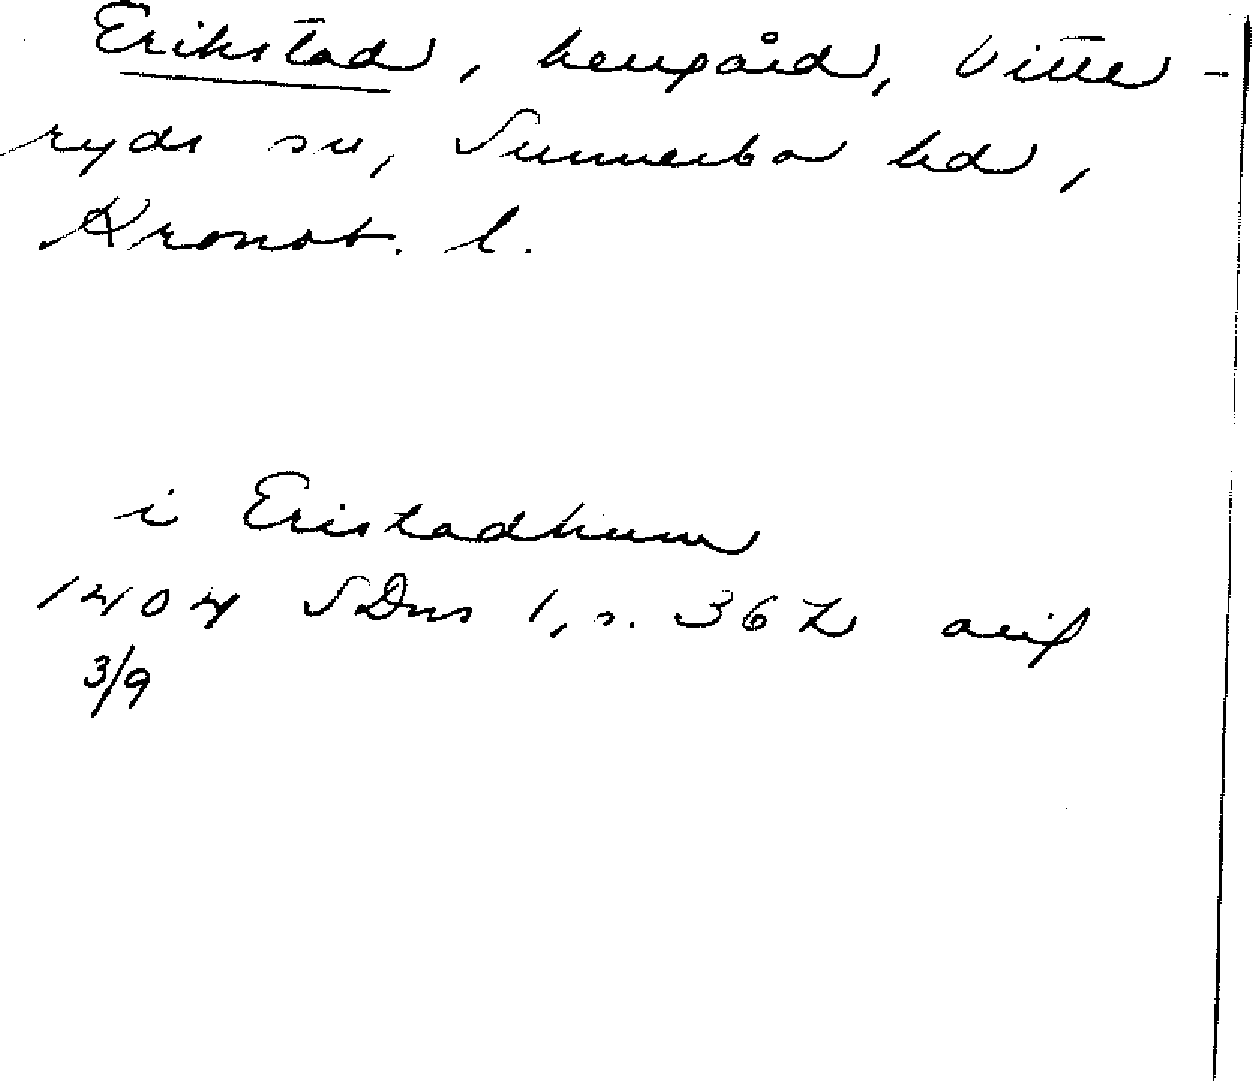 Erikstad, herrgård, Vitta-
ryds sn, Sunnerbo hd,
Kronob. l.
i Eristadhum
1404 SDns 1, s. 362 avif
3/9